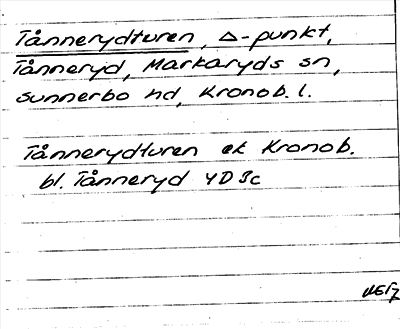 Tånnerydturen, Δ-punkt,
Tånneryd, Markaryds sn,
Sunnerbo hd, Kronob. l.
Tånnerydturen ek Kronob.
bl. Tånneryd 4D3c